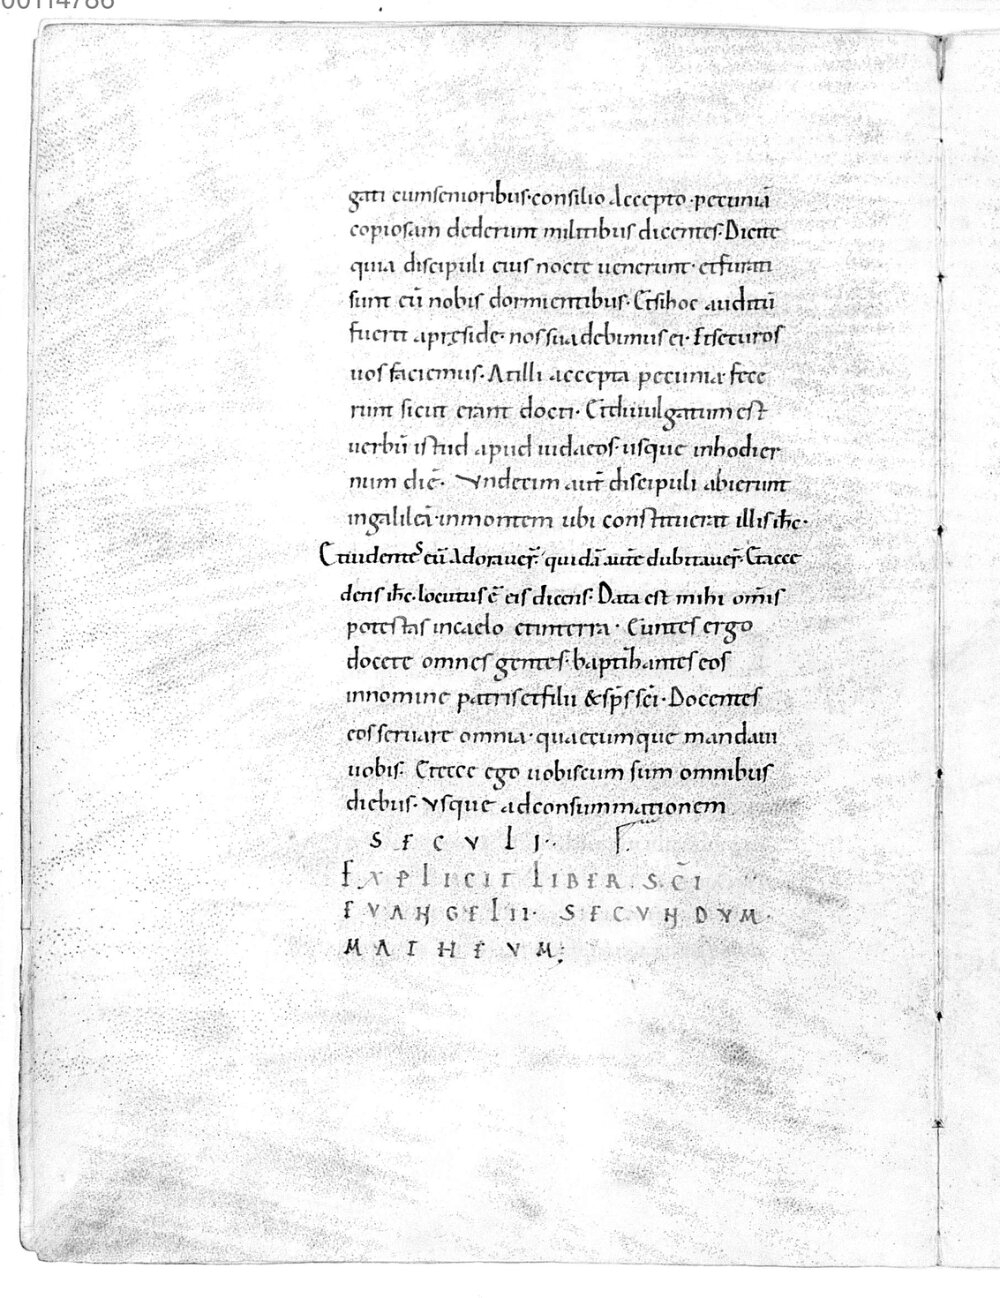 00114786
gati cumsenioribus·consilio Accepto·pecuniā
copiosam dederunt militibus dicentes·Dicite
quia discipuli eius nocte uenerunt· etfurati
sunt eū nobis dormientibus· Etsihoc auditū
fuerit apręside· nos suadebimus ei· Etsecuros
uos faciemus· Atilli accepta pecunia fece
runt sicut erant docti· Etdiuulgatum est
uerbū istud apud iudaeos·usque inhodier
num diē· Vndecim aut̄ discipuli abierunt
ingalileā·inmontem ubi constituerat illis ih̄c·
Etuidentes eū Adorauer̄· quidā aute dubitauer̄· Etacce
dens ih̄c·locutus ē eis dicens· Data est mihi om̄is
potestas incaelo etinterra· Euntes ergo
docete omnes gentes·baptihantes eos
innomine patrisetfilii &sp̄s sc̄i·Docentes
eosseruare omnia·quaecumque mandaui
uobis· Etecce ego uobiscum sum omnibus
diebus· Vsque adconsummationem
SECVLI·
EXPLICIT LIBER·SC̄I
EVANGELII· SECVNDVM·
MATHEVM;